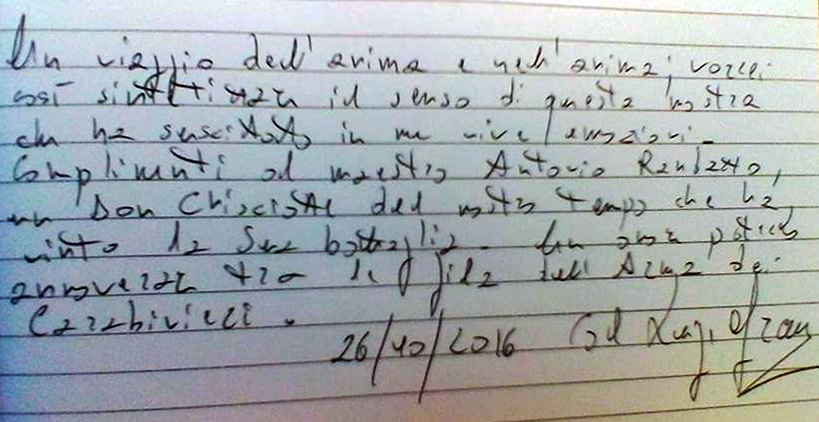 Un viaggio dell'anima e nell'anima; vorrei
così sintetizzare il senso di questa mostra
che ha suscitato in me vive emozioni.
Complimenti al maestro Antonio Randazzo,
un Don Chisciotte del nostro tempo che ha
vinto la sua battaglia. Un onore poterlo
annoverare tra le fila dell'Arma dei
Carabinieri.
26/10/2016 Col Luigi